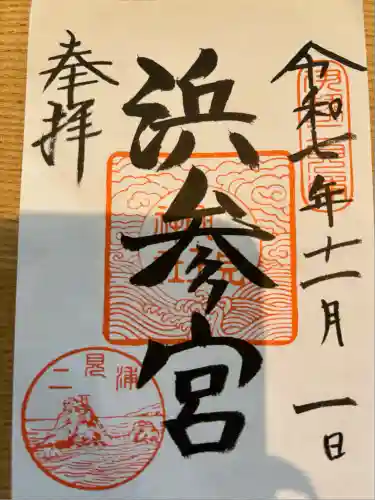 令和七年十一月一日
浜参宮
奉拝
二見浦